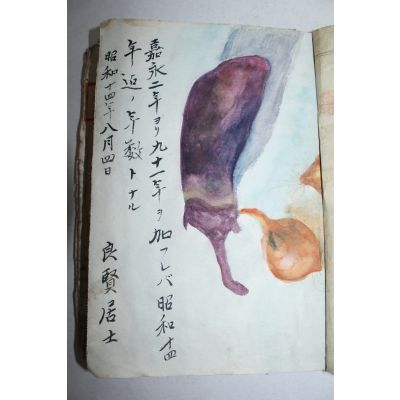 嘉永二年ヨリ九十一年ヲ加フレバ昭和十四
年迠ノ年数トナル
昭和十四年八月四日
良賢居士